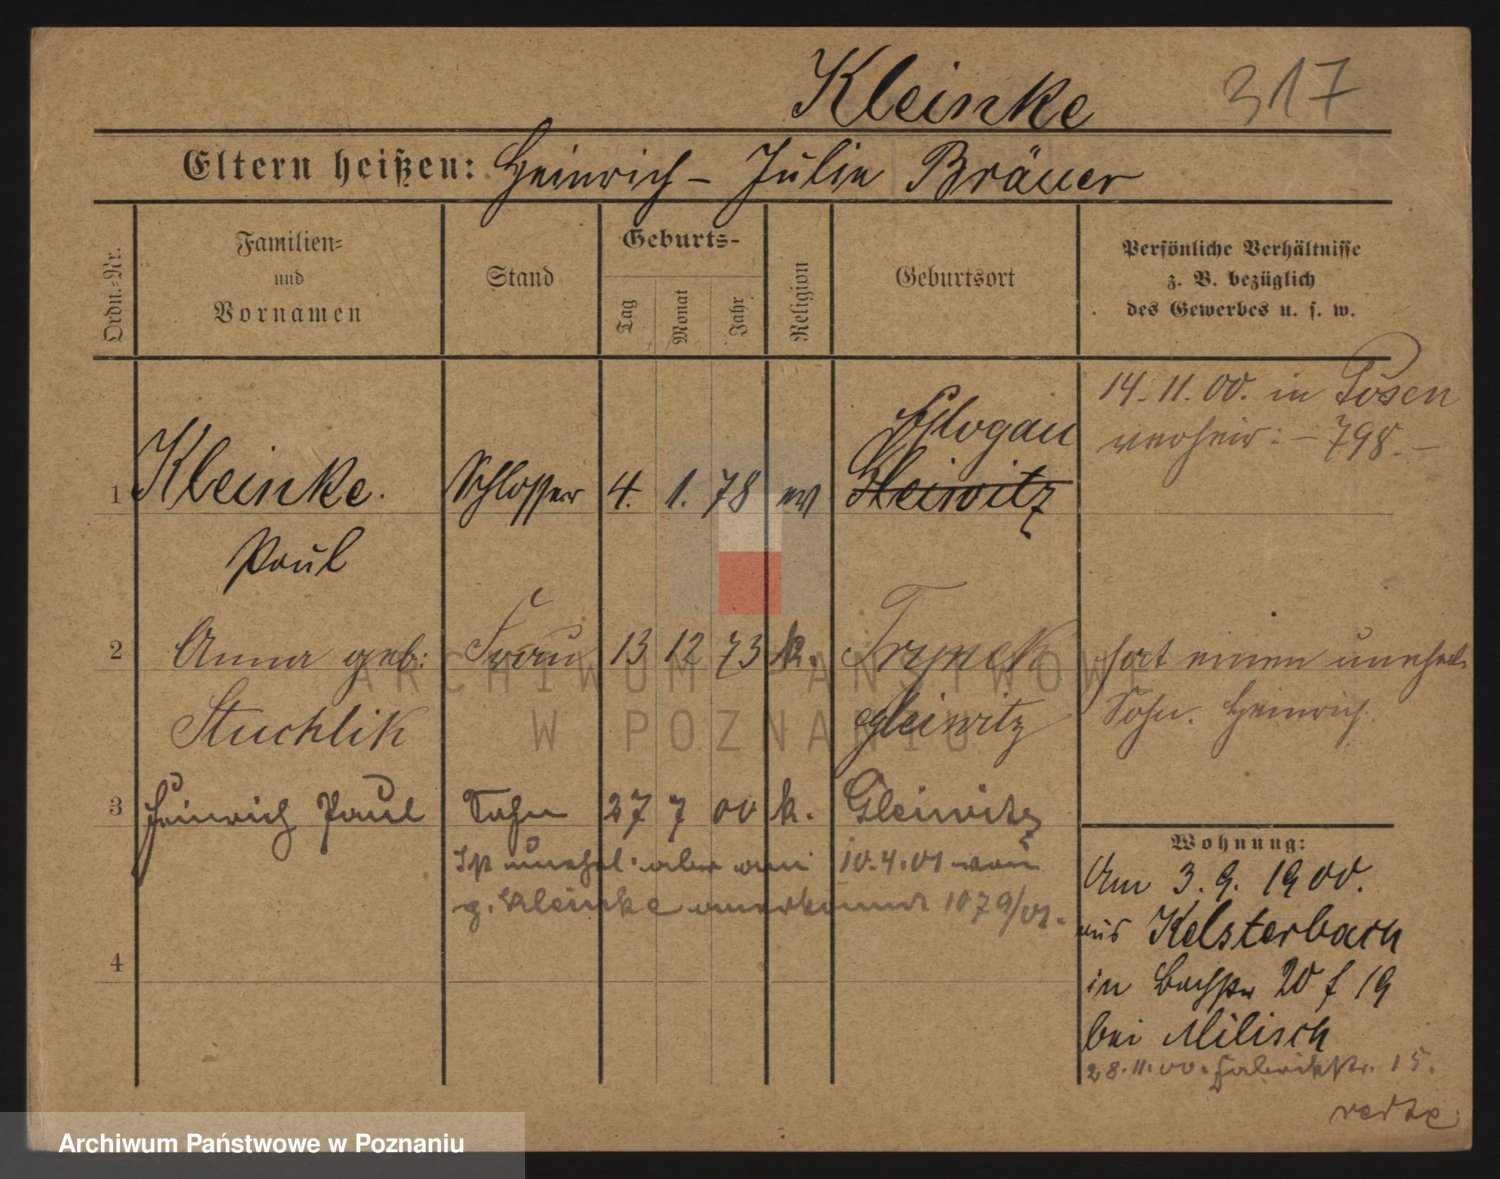 Kleinke 317
Eltern heißen: Heinrich – Julie Bräuer
Ordn.-Nr.
Familien-
und
Vornamen
Stand
Geburts-
Tag
Monat
Jahr
Religion
Geburtsort
Persönliche Verhältnisse
z. B. bezüglich
des Gewerbes u. s. w.
14. 11. 00. in Posen
verheir: – 798. –
Glogau
1 Kleinke. Schlosser 4. 1. 78 ev Gleiwitz
Paul
2 Anna geb: Frau 13 12 73 k. Trynek hat einen unehel.
Stuchlik Gleiwitz Sohn. Heinrich.
3 Heinrich Paul Sohn 27 7 00 k. Gleiwitz
Ist unehel. aber am 10.4.01 von
g. Kleinke anerkannt 1079/01.
4
Wohnung:
Am 3. 9. 1900.
aus Kelsterbach
in 20 f 19
bei Milisch
28.11.00. Fabrikstr. 15.
ARCHIWUM PAŃSTWOWE
W POZNANIU
Archiwum Państwowe w Poznaniu